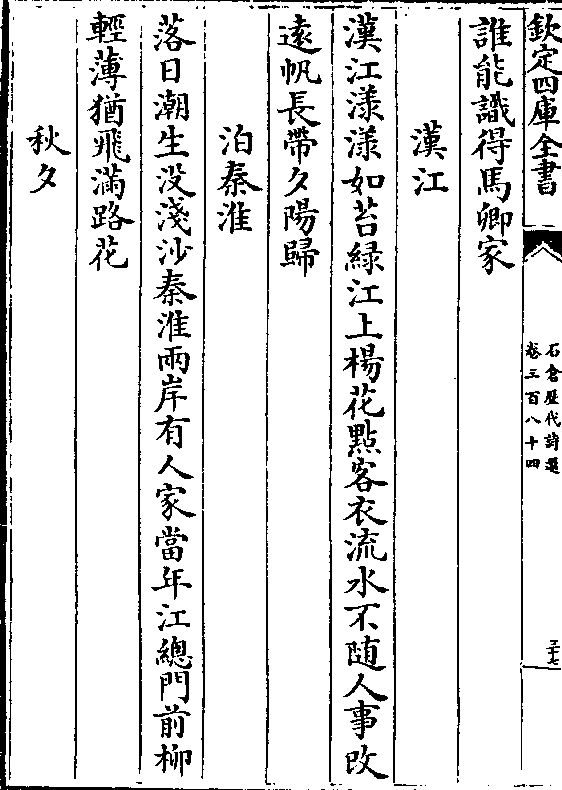 欽定四庫全書
石倉歷代詩選
卷三百八十四
三十七
誰能識得馬卿家
漢江
漢江漾漾如苔緑江上楊花點客衣流水不随人事改
遠帆長帶夕陽歸
泊秦淮
落日潮生没淺沙秦淮兩岸有人家當年江總門前柳
輕薄猶飛滿路花
秋夕